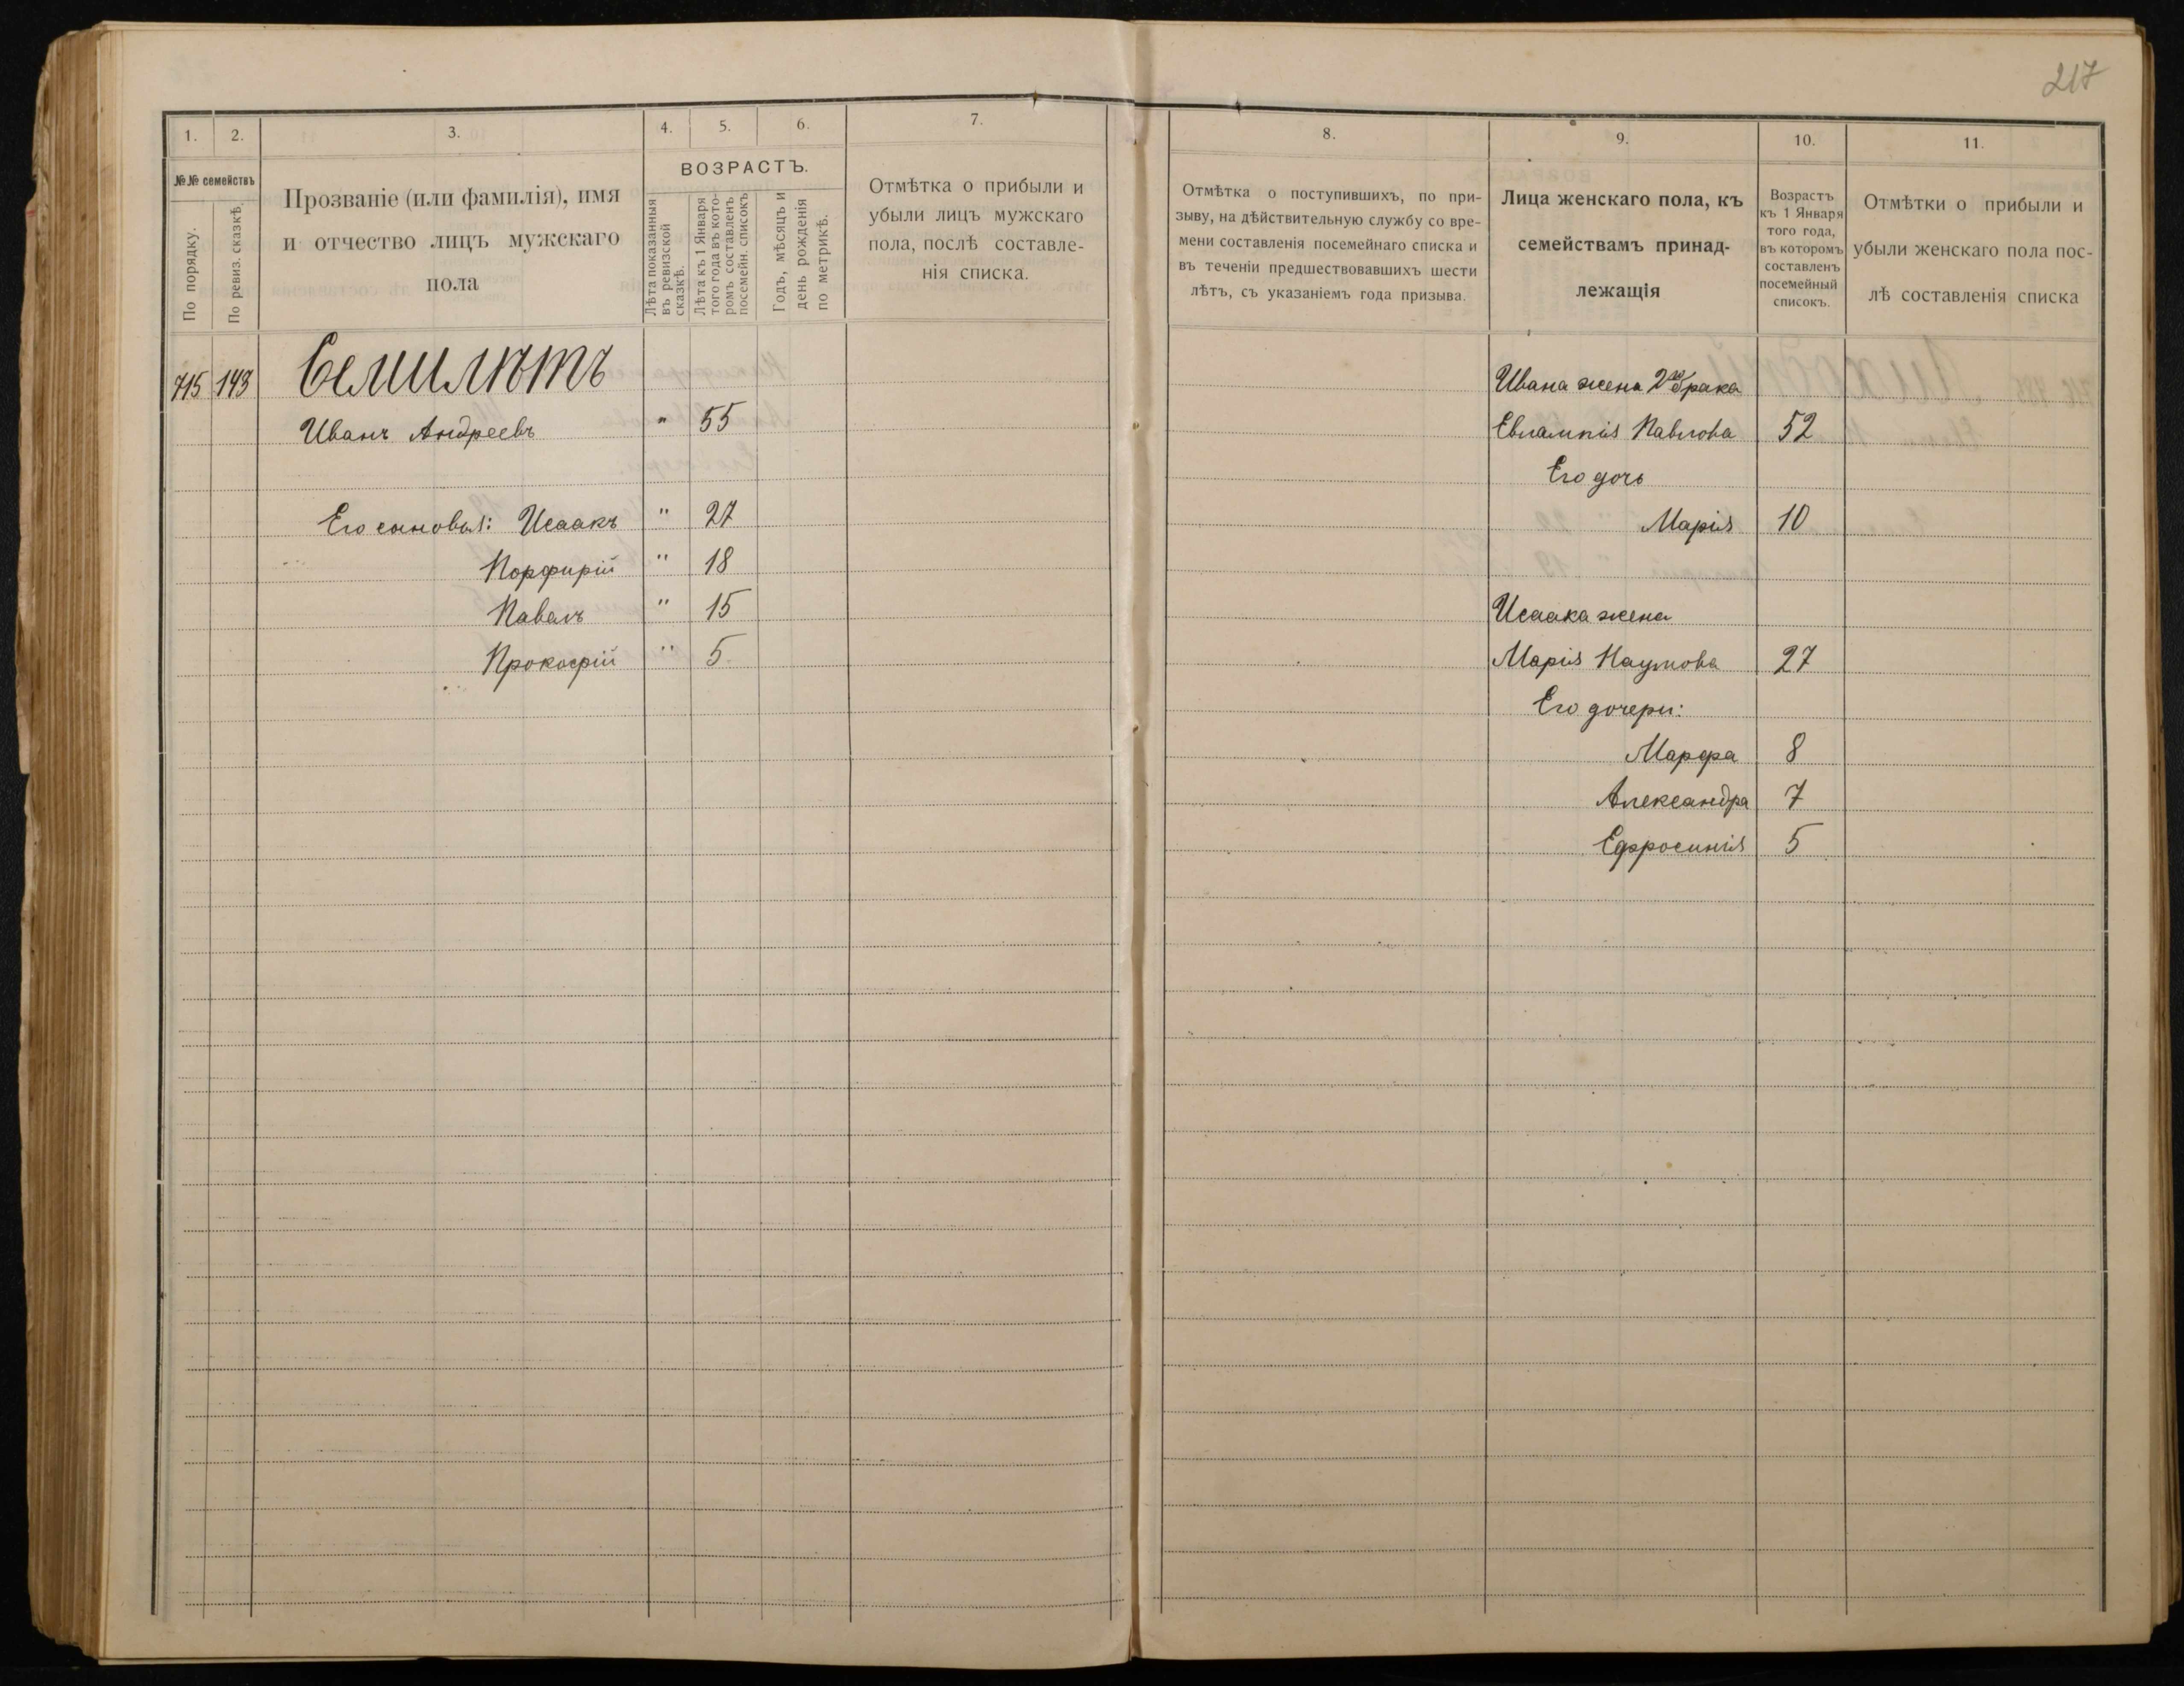 217
1. 2. 3. 4. 5. 6. 7.
№№ семействъ
По порядку.
По ревиз. сказкѣ.
Прозваніе (или фамилія), имя
и отчество лицъ мужскаго
пола
ВОЗРАСТЪ.
Лѣта показанныя
въ ревизской
сказкѣ.
Лѣта къ 1 Января
того года въ кото-
ромъ составленъ
посемейн. списокъ
Годъ, мѣсяцъ и
день рожденія
по метрикѣ.
Отмѣтка о прибыли и
убыли лицъ мужскаго
пола, послѣ составле-
нія списка.
715 143 Семилѣтъ
Иванъ Андреевъ " 55
Его сыновья: Исаакъ " 27
Порфирій " 18
Павелъ " 15
Прокофій " 5
8. 9. 10. 11.
Отмѣтка о поступившихъ, по при-
зыву, на дѣйствительную службу со вре-
мени составленія посемейнаго списка и
въ теченіи предшествовавшихъ шести
лѣтъ, съ указаніемъ года призыва.
Лица женскаго пола, къ
семействамъ принад-
лежащія
Возрастъ
къ 1 Января
того года,
въ которомъ
составленъ
посемейный
списокъ.
Отмѣтки о прибыли и
убыли женскаго пола пос-
лѣ составленія списка
Ивана жена 2го брака
Евлампія Павлова 52
Его дочь
Марія 10
Исаака жена
Марія Наумова 27
Его дочери:
Марфа 8
Александра 7
Ефросинія 5